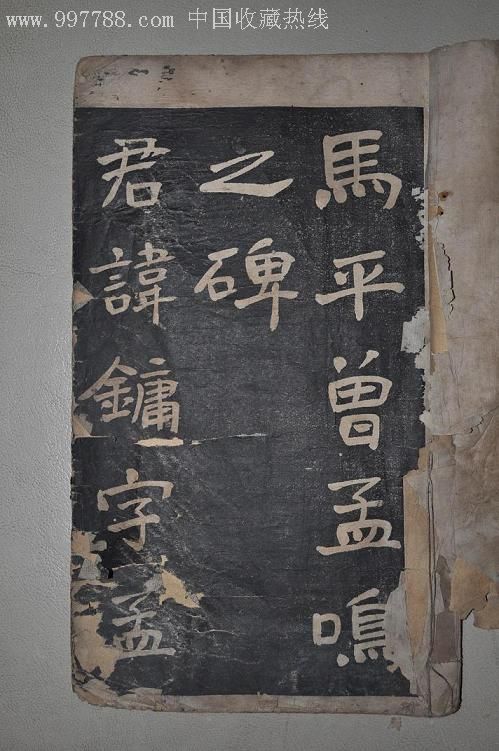 www.997788.com 中国收藏热线
馬平曾孟鳴
之碑
君諱鏞字孟